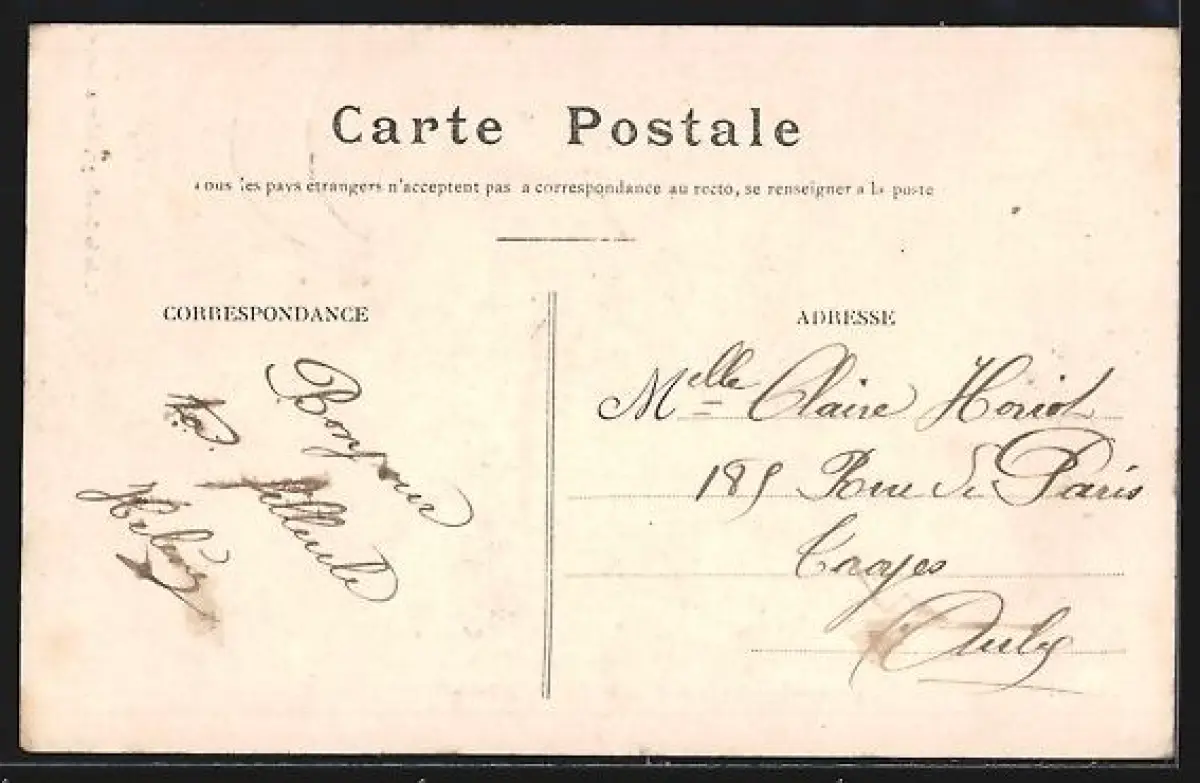 Carte Postale
Tous les pays étrangers n'acceptent pas la correspondance au recto, se renseigner à la poste
CORRESPONDANCE
Bonjour
ta filleule
Hélène
ADRESSE
Melle Claire Horiot
185 Rue de Paris
Troyes
Aube